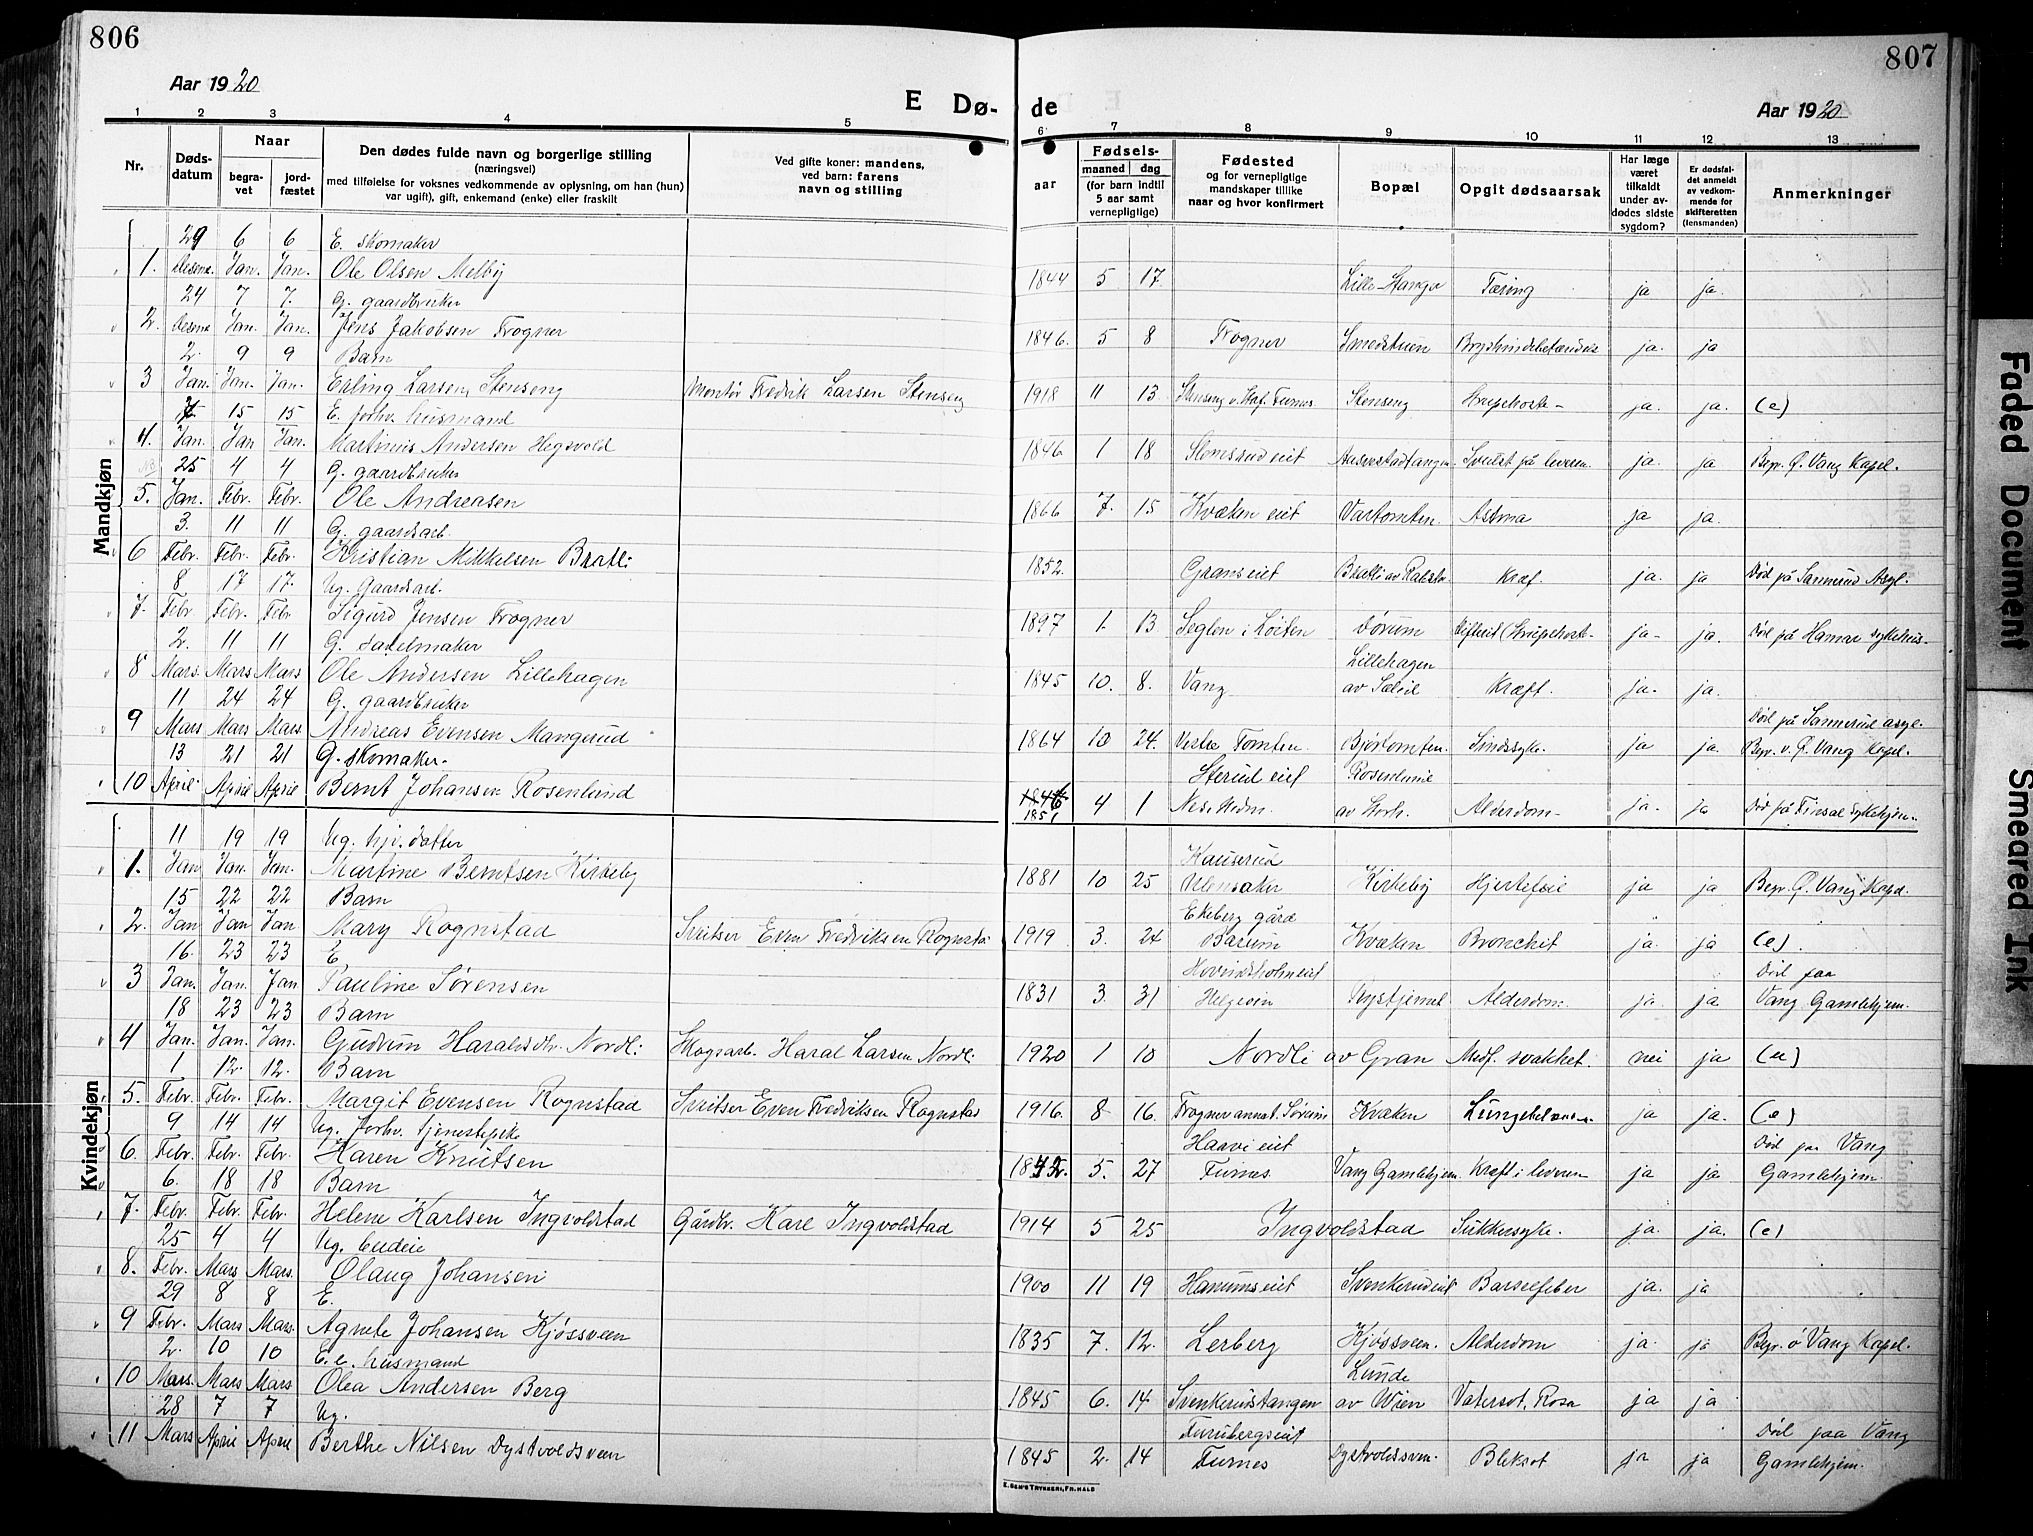 806
Aar 1920
E Dø-
1 2 3 4 5
Nr.
Døds-
datum
Naar
begra-
vet
jord-
fæstet
Den dødes fulde navn og borgerlige stilling
(næringsvei)
med tilføielse for voksnes vedkommende av oplysning, om han (hun)
var ugift), gift, enkemand (enke) eller fraskilt
Ved gifte koner: mandens,
ved barn: farens
navn og stilling
Mandkjøn
29 6 6 E. skomaker
1. Desemb. Jan. Jan. Ole Olsen Melby
24 7 7. G. gaardbruker
2. Desemb. Jan. Jan. Jens Jakobsen Frogner
2. 9 9 Barn
3 Jan. Jan. Jan. Erling Larsen Stenseng Montør Fredrik Larsen Stenseng
15 15 E. forhv. husmand
4. Jan. Jan Jan. Martinus Andersen Hegsvold
25 4 4 G. gaardbruker
5. Jan. Febr. Febr. Ole Andreasen
3. 11 11 G. gaardsarb.
6 Febr. Febr. Febr. Kristian Mikkelsen Bratli
8 17 17. Ug. Gaardsarb.
7. Febr Febr. Febr. Sigurd Jensen Frogner
2. 11 11 G. sadelmaker
8 Mars. Mars Mars Ole Andersen Lillehagen
11 24 24 G. gaardbruker
9 Mars Mars Mars. Andreas Evensen Mangerud
13 21 21 G. skomaker.
10 April April April Bernt Johansen Rosenlund
Kvindekjøn
11 19 19 Ug. hjv. datter
1. Jan Jan. Jan. Martine Berntsen Kirkeby
15 22 22 Barn
2. Jan Jan Jan Mary Rognstad Sveitser Even Fredriksen Rognstad
16. 23 23 E.
3 Jan. Jan. Jan Pauline Sørensen
18 23 23 Barn
4 Jan. Jan. Jan. Gudrun Haraldsdtr. Nordli Skogsarb. Haral Larsen Nordli
1 12. 12. Barn
5. Febr. Febr. Febr. Margit Evensen Rognstad Sveitser Even Fredriksen Rognstad
9 14 14 Ug. forhv. tjenestepike
6. Febr. Febr. Febr. Karen Knutsen
6. 18 18 Barn
7. Febr. Febr. Febr. Helene Karlsen Ingvoldstad Gårdbr. Karl Ingvoldstad
25 4 4 Ug. budeie
8. Febr. Mars Mars. Olaug Johansen
29 8 8 E.
9 Febr. Mars Mars. Agnete Johansen Kjøssveen
2. 10 10 E. e. husmand
10 Mars. Mars Mars Olea Andersen Berg
28 7 7 Ug.
11 Mars April April Berthe Nilsen Dystvoldsveen
807
de
Aar 1920
6 7 8 9 10 11 12 13
aar
Fødsels-
maaned dag
(for barn indtil
5 aar samt
vernepligtige)
Fødested
og for vernepligtige
mandskaper tillike
naar og hvor konfirmert
Bopæl
Opgit dødsaarsak
Har læge
været
tilkaldt
under av-
dødes sidste
sygdom?
Er dødsfal-
det anmeldt
av vedkom-
mende for
skifteretten
(lensmanden)
Anmerkninger
1844 5 17. Lille-Stange Tæring ja ja.
1846. 5 8 Frogner Smedstuen Brysthindebetændelse ja. ja
1918 11 13. Stenseng v. Furnes Stenseng Strupehoste ja. ja. (e)
1846 1 18 ja. ja Begr. Ø. Vang Kapel.
1866 7. 15 Kvæken eiet Vartomten. Astma ja ja.
1852. Granseiet Bratli av Kræf. ja. ja Død på Sanerud Asyl.
1897 1. 13 Seglen i Løiten Dørum Difterit (Strupehoste ja- ja. Død på Hamar sykehus
Lillehagen
1845 10. 8. Vang av Sælid Kræft. ja. ja.
Død på Sanerud asyl.
1864 10 24. Vestre Tomten. Bjørtomten. Sindssyke. ja ja. Begr. v. Ø. Vang Kapel.
Sterud eiet Rosenlund
1846
1851 4 1 Nes. Hedm. av Storh. Alderdom ja. ja Død på Finsal sykehjem.
Kauserud
1881 10 25 Ulensaker Kirkeby Hjertefeil ja ja Begr. Ø. Vang Kapel.
Ekeberg gård
1919. 3. 24 Bærum Kvæken Bronchit ja. ja (e).
Hovindsholm eiet Død paa
1831 3. 31 Helgøen Rystjernet Alderdom. ja ja Vang Gamlehjem.
1920 1 10 Nordli av Gran Medf. svakhet. nei ja (u)
1916. 8 16. Frogner annat. Sørum Kvæken Lungebetændelse ja ja. (e)
Haave eiet Død paa Vang
1842. 5. 27 Furnes Vang Gamlehjem. Kræft i leveren ja ja Gamlehjem.
1914 5 25 Ingvoldstad Sukkersyke. ja ja. (e)
1900 11 19 Hanumseiet Svenkerudeiet Barselfeber ja. ja
1835 7. 12. Lerberg Kjøssveen. Alderdom ja. ja Begr. ø Vang Kapel.
Lunde
1845 6. 14 Svenkerudstangen av Wien Vatersot, Rosa ja ja
Furubergseiet Død paa Vang
1845 2. 14 Furnes Dystvoldsveen. Bleksot ja ja Gamlehjem.
E. SEM'S TRYKKERI, FR.HALD
Faded Document
Smeared Ink